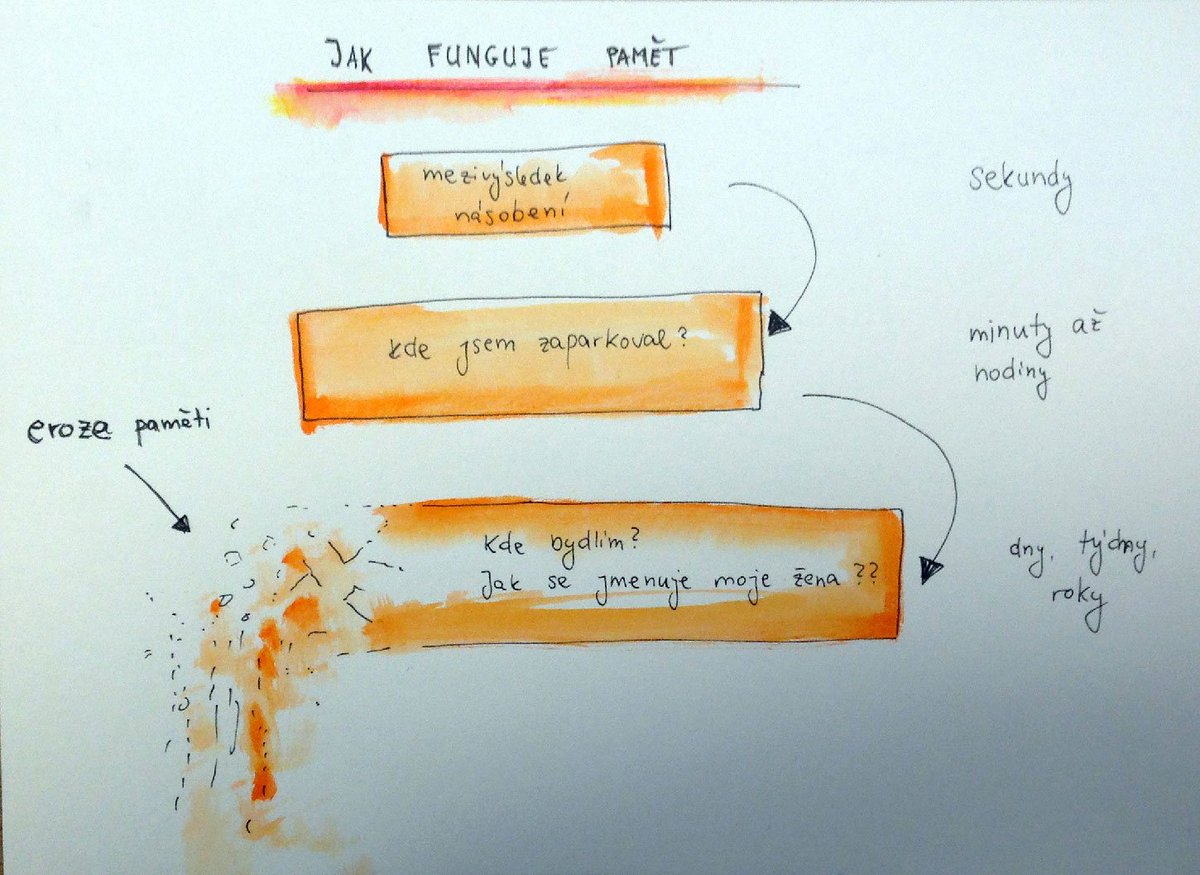 JAK FUNGUJE PAMĚT
mezivýsledek
násobení
sekundy
kde jsem zaparkoval?
minuty až
hodiny
eroze paměti
Kde bydlím?
Jak se jmenuje moje žena ??
dny, týdny,
roky